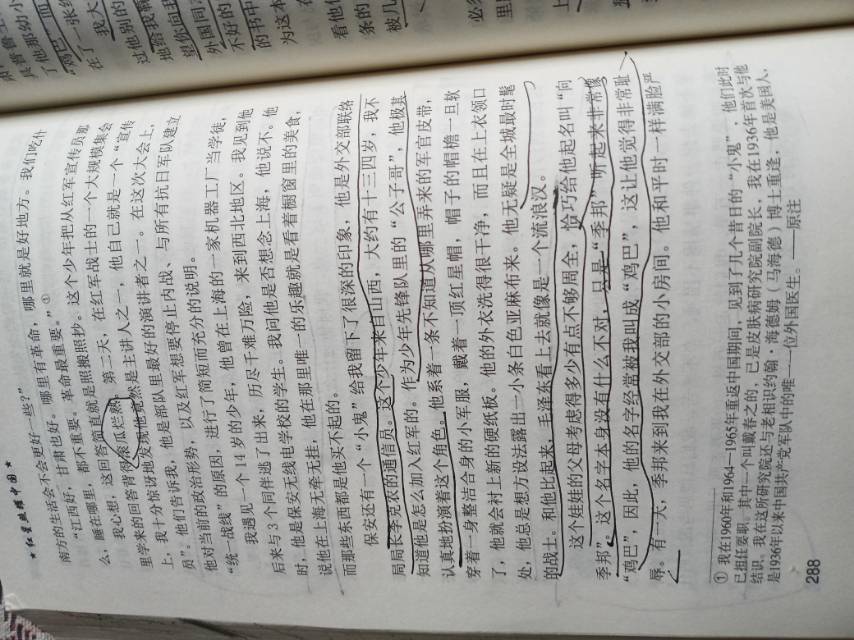 ★ 红星照耀中国 ★
南方的生活会不会更好一些?”
“江西好,甘肃也好。哪里有革命,哪里就是好地方。我们吃什
么,睡在哪里,都不重要。革命最重要。”①
我心想,这回答简直就是照搬照抄。这个少年把从红军宣传员那
里学来的回答背得滚瓜烂熟。第二天,在红军战士的一个大规模集会
上,我十分惊讶地发现他竟然是主讲人之一,他自己就是一个“宣传
员”。他们告诉我,他是部队里最好的演讲者之一。在这次大会上,
他对当前的政治形势,以及红军想要停止内战、与所有抗日军队建立
“统一战线”的原因,进行了简短而充分的说明。
我遇见一个14岁的少年,他曾在上海的一家机器工厂当学徒,
后来与3个同伴逃了出来,历尽千难万险,来到西北地区。我见到他
时,他是保安无线电学校的学生。我问他是否想念上海,他说不。他
说他在上海无牵无挂,他在那里唯一的乐趣就是看着橱窗里的美食,
而那些东西都是他买不起的。
保安还有一个“小鬼”给我留下了很深的印象,他是外交部联络
局局长李克农的通信员。这个少年来自山西,大约有十三四岁,我不
知道他是怎么加入红军的。作为少年先锋队里的“公子哥”,他极其
认真地扮演着这个角色。他系着一条不知道从哪里弄来的军官皮带,
穿着一身整洁合身的小军服,戴着一顶红星帽,帽子的帽檐一旦软
了,他就会衬上新的硬纸板。他的外衣洗得很干净,而且在上衣领口
处,他总是想方设法露出一小条白色亚麻布来。他无疑是全城最时髦
的战士。和他比起来,毛泽东看上去就像是一个流浪汉。
这个娃娃的父母考虑得多少有点不够周全,恰巧给他起名叫“向
季邦”。这个名字本身没有什么不对,只是“季邦”听起来非常像
“鸡巴”,因此,他的名字经常被我叫成“鸡巴”,这让他觉得非常耻
辱。有一天,季邦来到我在外交部的小房间。他和平时一样满脸严
① 我在1960年和1964—1965年重返中国期间,见到了几个昔日的“小鬼”,他们此时
已担任要职。其中一个叫戴春之的,已是皮肤病研究院副院长,我在1936年首次与他
结识。我在这所研究院还与老相识约翰·海德姆(马海德)博士重逢,他是美国人,
是1936年以来中国共产党军队中的唯一一位外国医生。——原注
288